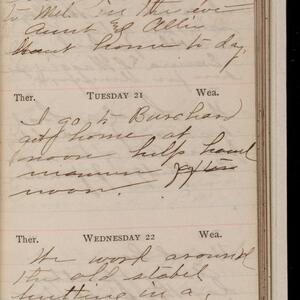 to Mel. In the eve
Aunt & Allie
went home to day.
Ther. TUESDAY 21 Wea.
I go to Burchard
get home at
noon help haul
manure after
noon.
Ther. WEDNESDAY 22 Wea.
We work around
the old stabel
putting in a